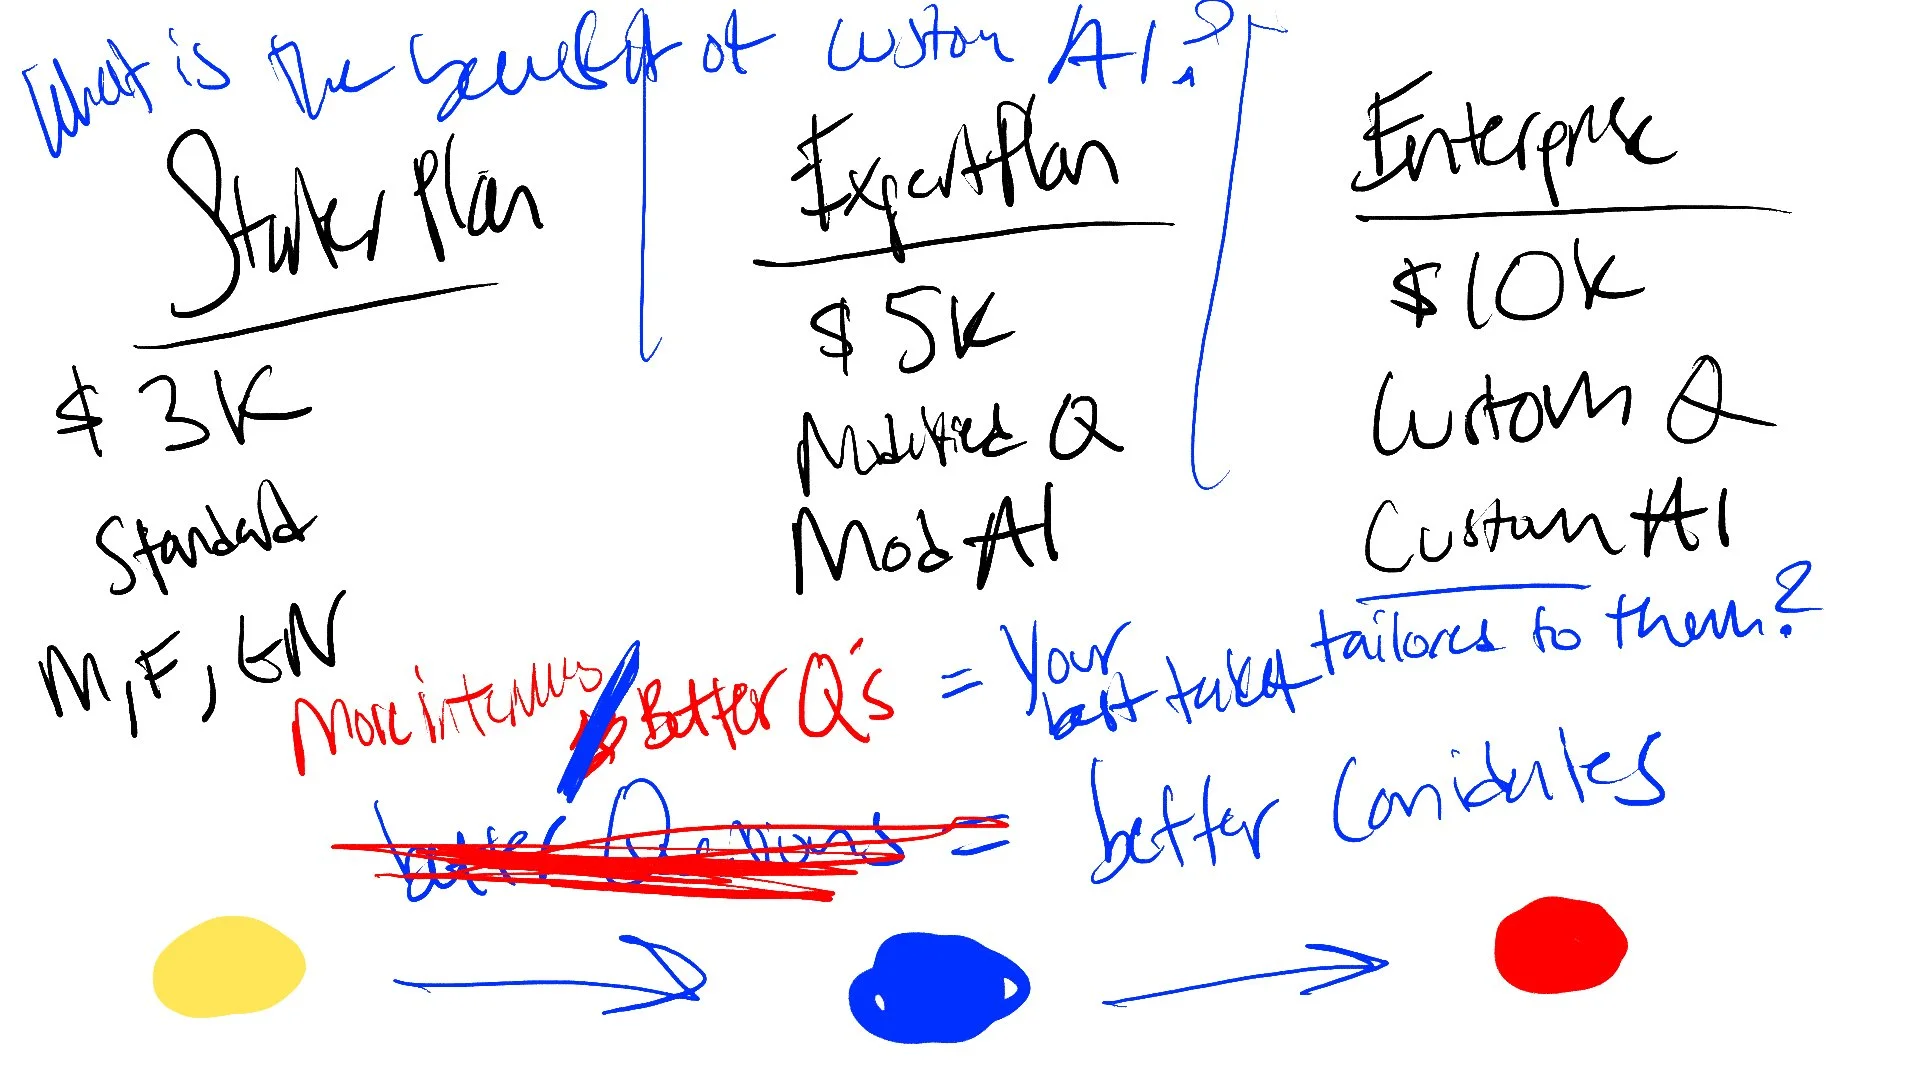 What is the benefit of custom AI?
Starter Plan
$ 3K
Standard
M, F, GN
Expert Plan
$ 5K
Modified Q
Mod AI
Enterprise
$ 10K
Custom Q
Custom AI
More
Better Q's = Your best talent tailored to them?
better Questions = better Canidates